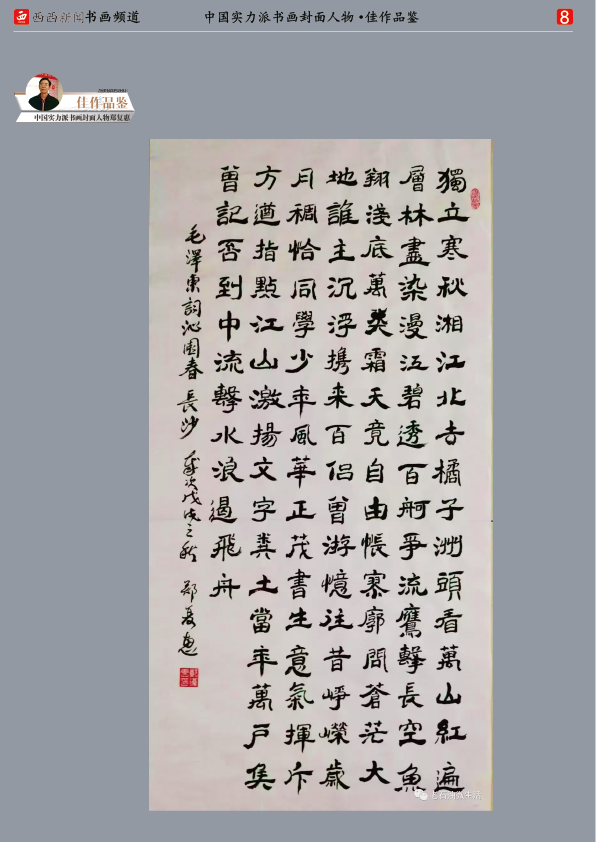 西西新闻书画频道
中国实力派书画封面人物·佳作品鉴
8
佳作品鉴
中国实力派书画封面人物郑复惠
獨立寒秋湘江北去橘子洲頭看萬山紅遍
層林盡染漫江碧透百舸爭流鷹擊長空魚
翔淺底萬类霜天竞自由帳寥廓問蒼茫大
地誰主沉浮携来百侣曾游憶往昔崢嶸歲
月稠恰同學少年風華正茂書生意氣揮斥
方遒指點江山激揚文字糞土當年萬戶侯
曾記否到中流擊水浪遏飛舟
毛澤東詞沁園春長沙 歲次戊戌之秋 鄭复惠